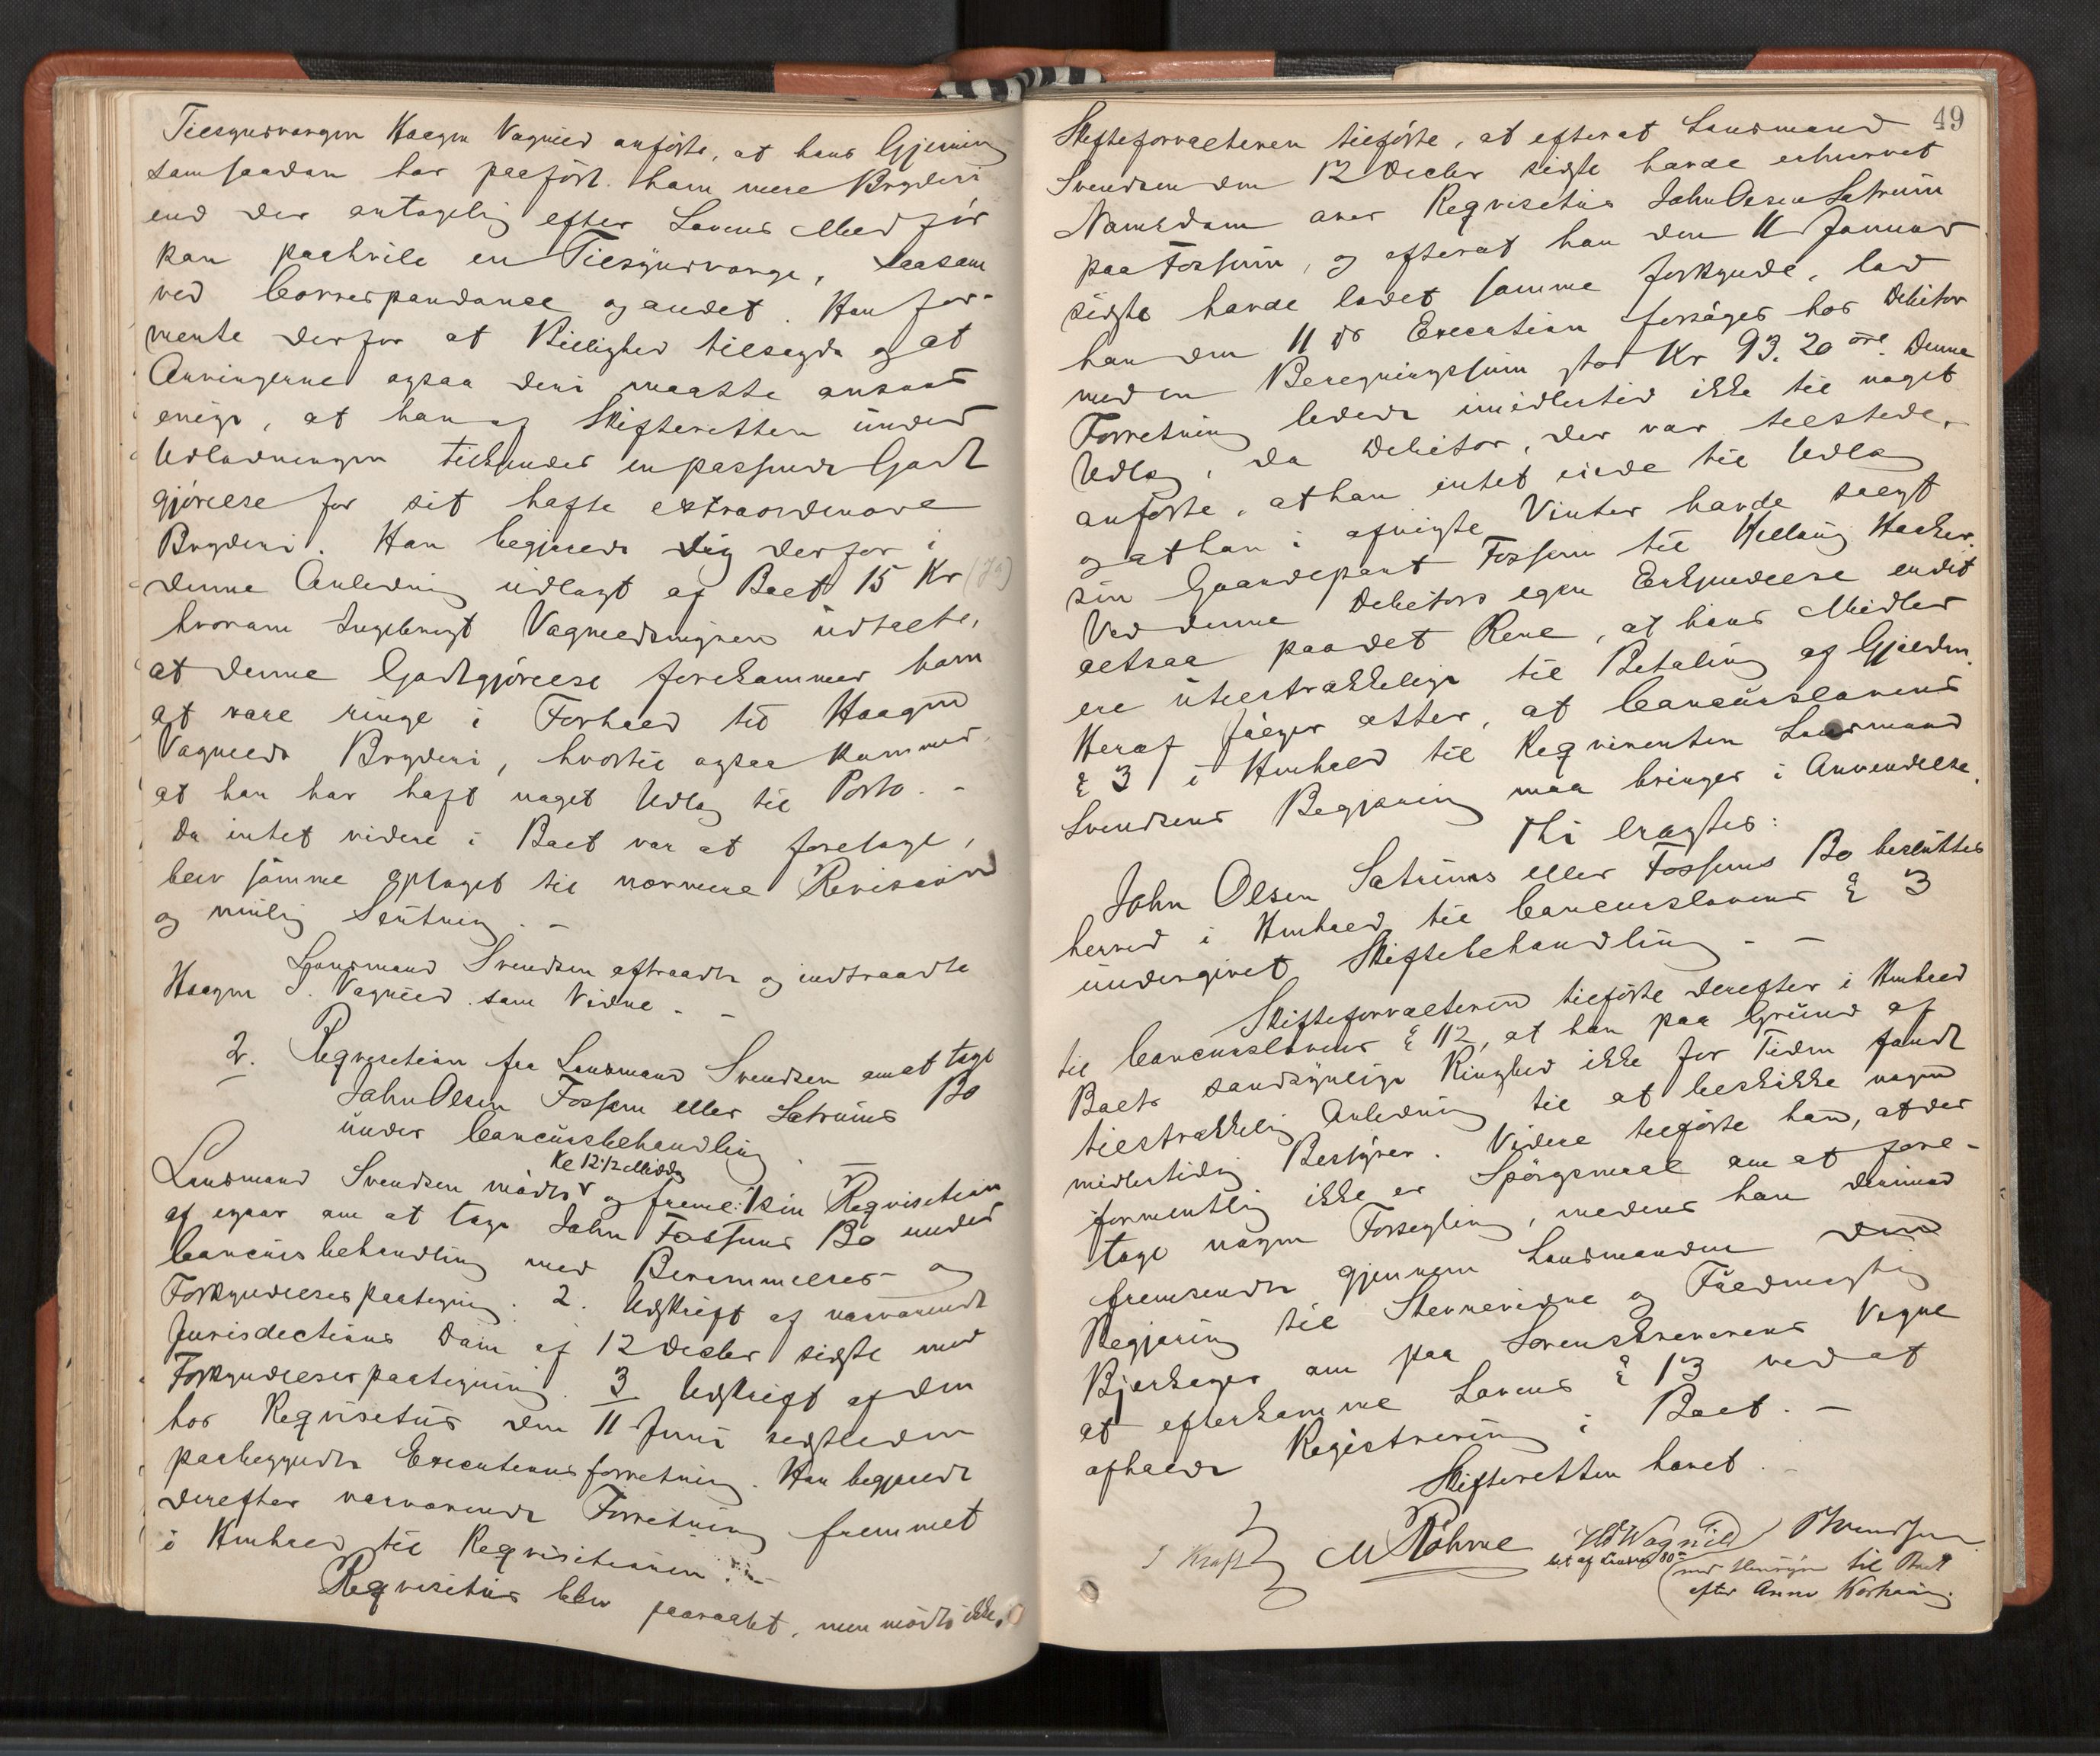 Tilsynsvergen Haagen Vagnild anførte, at hans Gjerning
som saadan har paaført ham mere Bryderi
end der antagelig efter Lovens Medfør
kan paahvile en Tilsynsverge, saasom
ved Correspondance og andet. Han for-
mente derfor at Billighed tilsagde og at
Arvingerne ogsaa deri maatte ansees
enige, at han af Skifteretten under
Udlodningen tilkjendes en passende Godt
gjørelse for sit hafte extraordinære
Bryderi. Han begjærede sig derfor i
denne Anledning udlagt af Boet 15 Kr
hvorom Ingebrigt Vagnildsmyren udtalte,
at denne Godtgjørelse forekommer ham
at være ringe i Forhold til Haagen
Vagnilds Bryderi, hvortil ogsaa kommer
at han har haft noget Udlæg til Porto. -
Da intet videre i Boet var at foretage,
blev samme optaget til nærmere Revision
og mulig Slutning. -
Lensmand Svendsen aftraadte og indtraadte
Haagen I. Vagnild som Vidne. -
2. Reqvisition fra Lensmand Svendsen om at tage
John Olsen Fossem eller Sætrums Bo
under Concursbehandling. -
Kl 12 1/2 Middg
Lensmand Svendsen mødte v og freml: 1 sin Reqvisition
af igaar om at tage John Fossems Bo under
Concursbehandling med Berammelses- og
Forkyndelsespaategning. 2. Udskrift af nærværende
Jurisdictions Dom af 12 Decbr sidste med
Forkyndelsespaategning. 3 Udskrift af den
hos Reqvisitus den 11 Juni sidstleden
paabegyndte Executionsforretning. Han begjærede
derefter nærværende Forretning fremmet
i Henhold til Reqvisitionen. -
Reqvisitus blev paaraabt, men mødte ikke.
49
Skifteforvalteren tilførte, at efterat Lensmand
Svendsen den 12 Decbr sidste havde erhvervet
Namsdom over Reqvisitus John Olsen Sætrum
paa Fossem, og efterat han den 11 Januar
sidste havde ladet samme forkynde, lod
han den 11 ds Execution forsøges hos Debitor
med en Beregningssum stor Kr 93.20 øre. Denne
Forretning ledede imidlertid ikke til noget
Udlæg, da Debitor, der var tilstede,
anførte, at han intet eiede til Udlæg
og at han i afvigte Vinter havde solgt
sin Gaardepart Fossem til
Ved denne Debitors egen Erkjendelse er det
altsaa paa det Rene, at hans Midler
ere utilstrækkelige til Betaling af Gjælden.
Heraf følger atter, at Concurslovens
§ 3 i Henhold til Reqvirenten Lensmand
Svendsens Begjæring maa bringes i Anvendelse.
Thi eragtes:
John Olsen Sætrums eller Fossems Bo besluttes
herved i Henhold til Concurslovens § 3
undergivet Skiftebehandling. -
Skifteforvalteren tilførte derefter i Henhold
til Concurslovens § 112, at han paa Grund af
Boets sandsynlige Ringhed ikke for Tiden fandt
tilstrækkelig Anledning til at beskikke nogen
midlertidig Bestyrer. Videre tilførte han, at der
formentlig ikke er Spørgsmaal om at fore-
tage nogen Forsegling, medens han derimod
fremsendte gjennem Lensmanden den
Begjæring til Stevnevidne og Fuldmægtig
Bjerkager om paa Sorenskriverens Vegne
at efterkomme Lovens § 13 ved at
afholde Registrering i Boet. -
Skifteretten hævet. -
I Kraft M Røhme HI Wagnild PSvendsen
med Hensyn til Boet
efter Anne